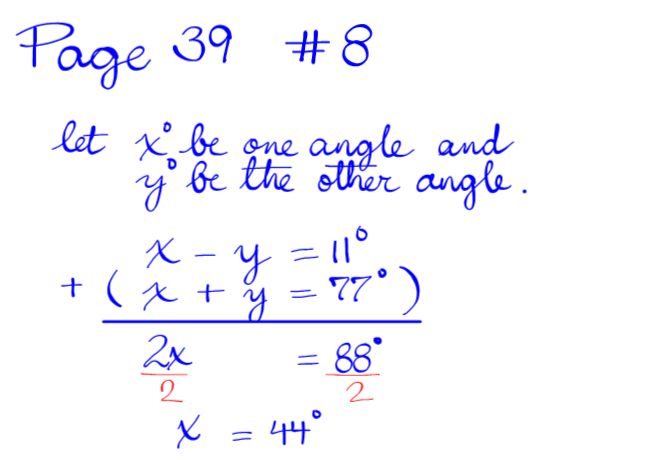 Page 39 #8
let x° be one angle and
y° be the other angle.
x - y = 11°
+ ( x + y = 77° )
2x = 88°
2 2
x = 44°